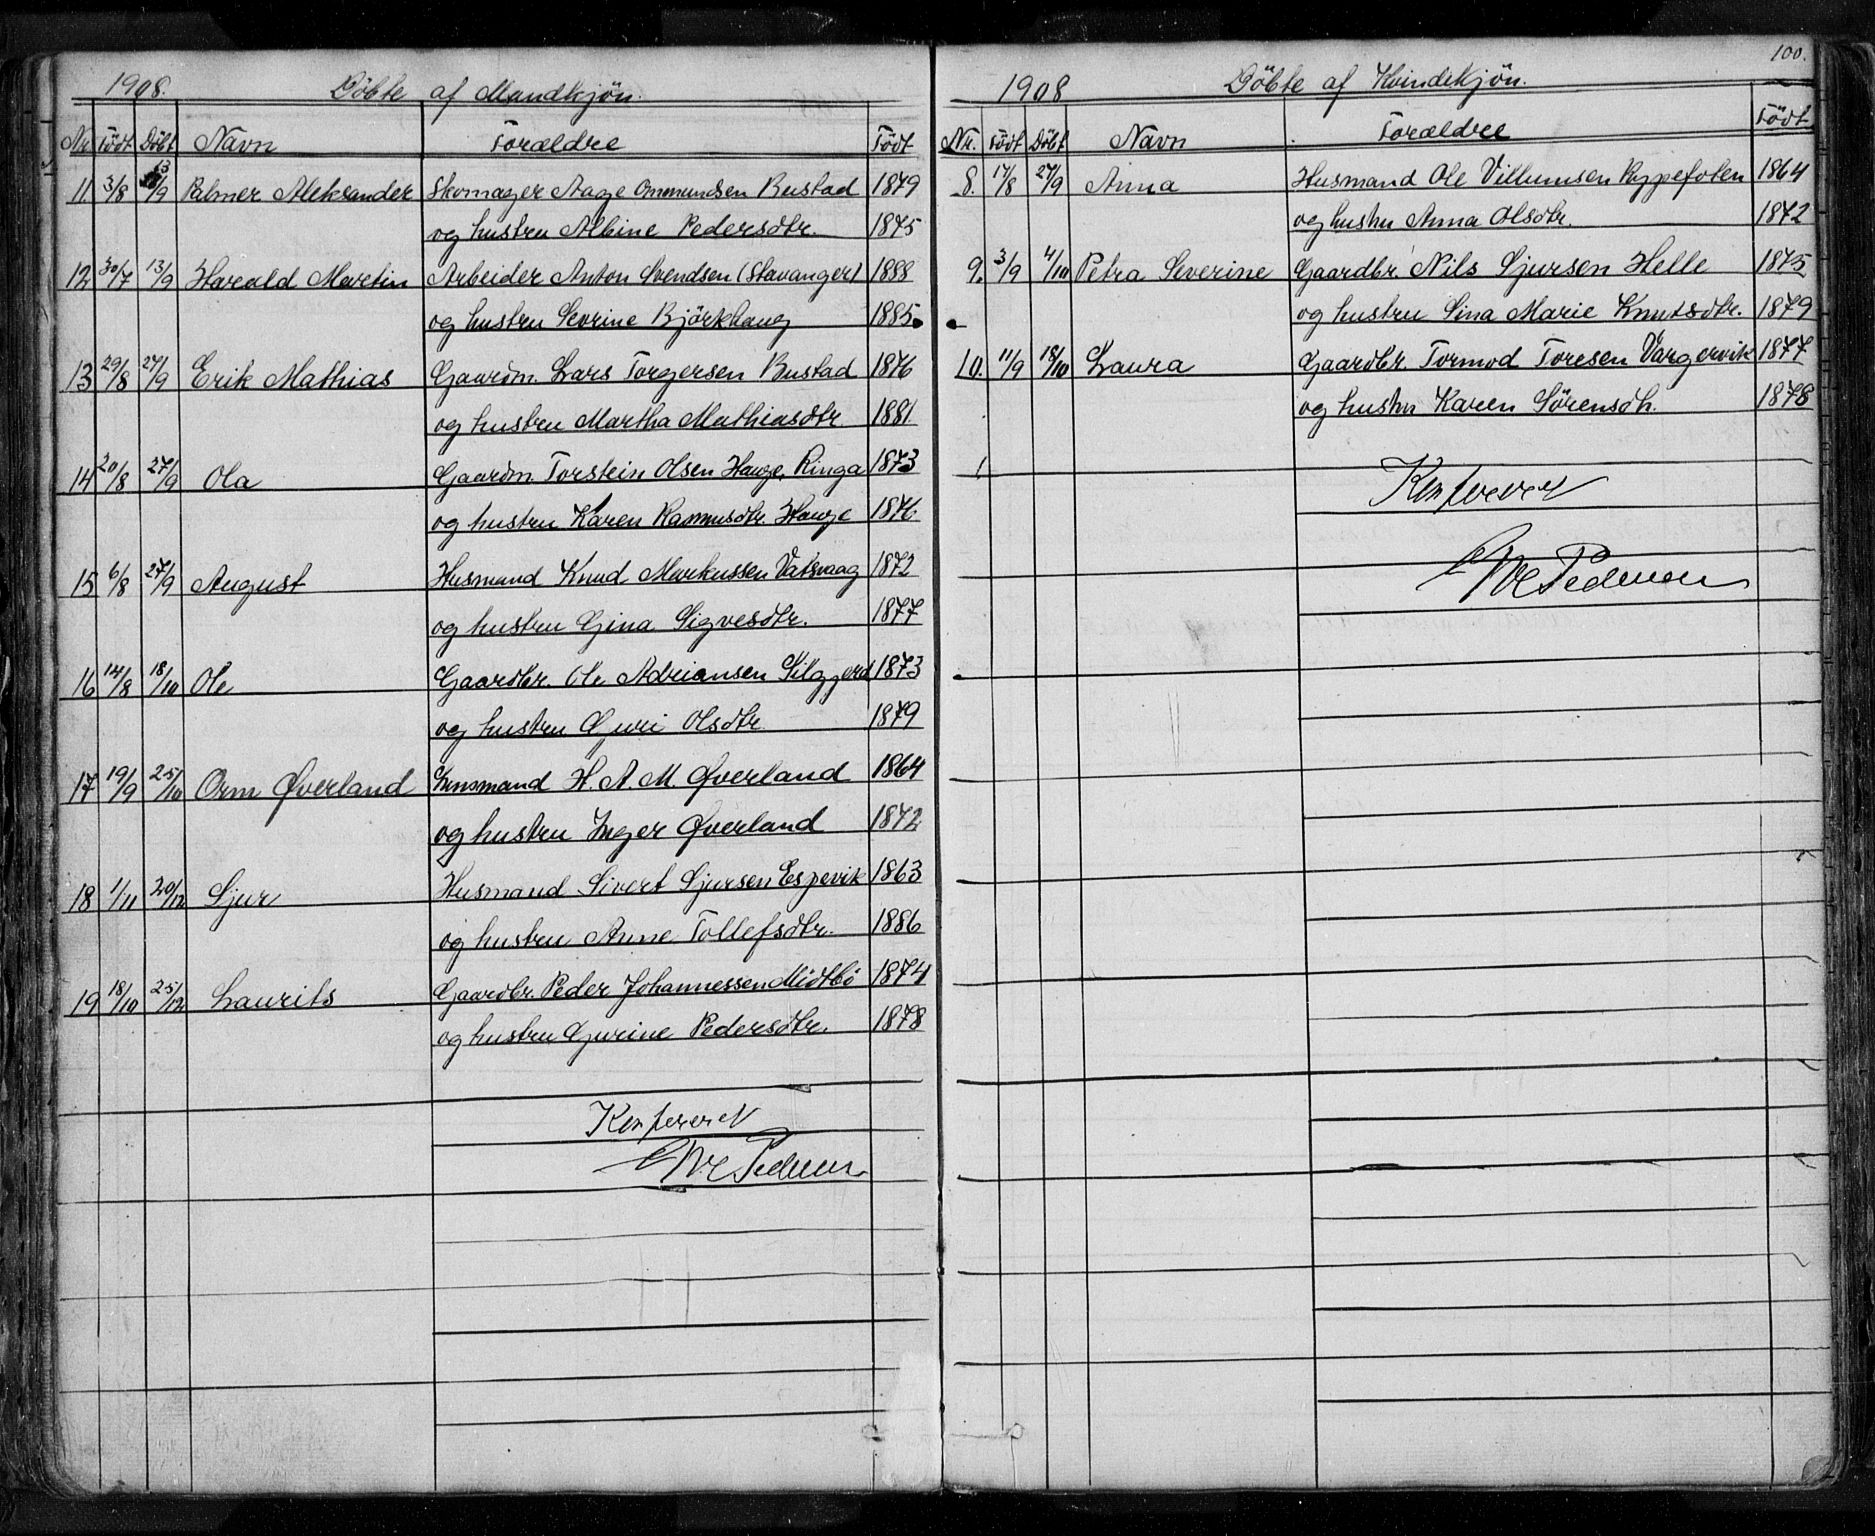 1908. Döbte af Mandkjön.
Nr. Födt Döbt Navn Forældre Födt
11. 3/8 13/9 Palmer Aleksander Skomager Aage Ommundsen Bustad 1879
og hustru Albine Pedersdtr. 1875
12 30/7 13/9 Harald Martin Arbeider Anton Svendsen (Stavanger) 1888
og hustru Sevrine Björkhaug 1885
13 29/8 27/9 Erik Mathias Gaardm. Lars Torgersen Bustad 1876
og hustru Martha Mathiasdtr. 1881
14 20/8 27/9 Ola Gaardm. Torstein Olsen Hauge, Ringa 1873
og hustru Karen Rasmusdtr. Hauge 1876
15 6/8 27/9 August Husmand Knud Markussen Vatsvaag 1872
og hustru Gina Sigvesdtr. 1877
16 14/8 18/10 Ole Gaardbr. Ole Adriansen 1873
og hustru Guri Olsdtr 1879
17 19/9 25/10 Orm Øverland Lensmand H. A. M. Øverland 1864
og hustru Inger Øverland 1872
18 1/11 20/12 Sjur Husmand Sivert Sjursen Espevik 1863
og hustru Anne Tollefsdtr. 1886
19 18/10 25/12 Laurits Gaardbr. Peder Johannessen Midtbö 1874
og hustru Gurine Pedersdtr. 1878
Konfereret
Pedersen
100.
1908 Döbte af Kvindekjön.
Nr. Födt Döbt Navn Forældre Födt
8. 17/8 27/9 Anna Husmand Ole Villumsen Rypefoten 1864
og hustru Anna Olsdtr. 1872
9. 3/9 4/10 Petra Severine Gaardbr. Nils Sjursen Helle 1875
og hustru Sina Marie Knutsdtr. 1879
10. 11/9 18/10 Laura Gaardbr. Tormod Toresen Vargervik 1877
og hustru Karen Sörensdtr. 1878
Konfereret
Pedersen